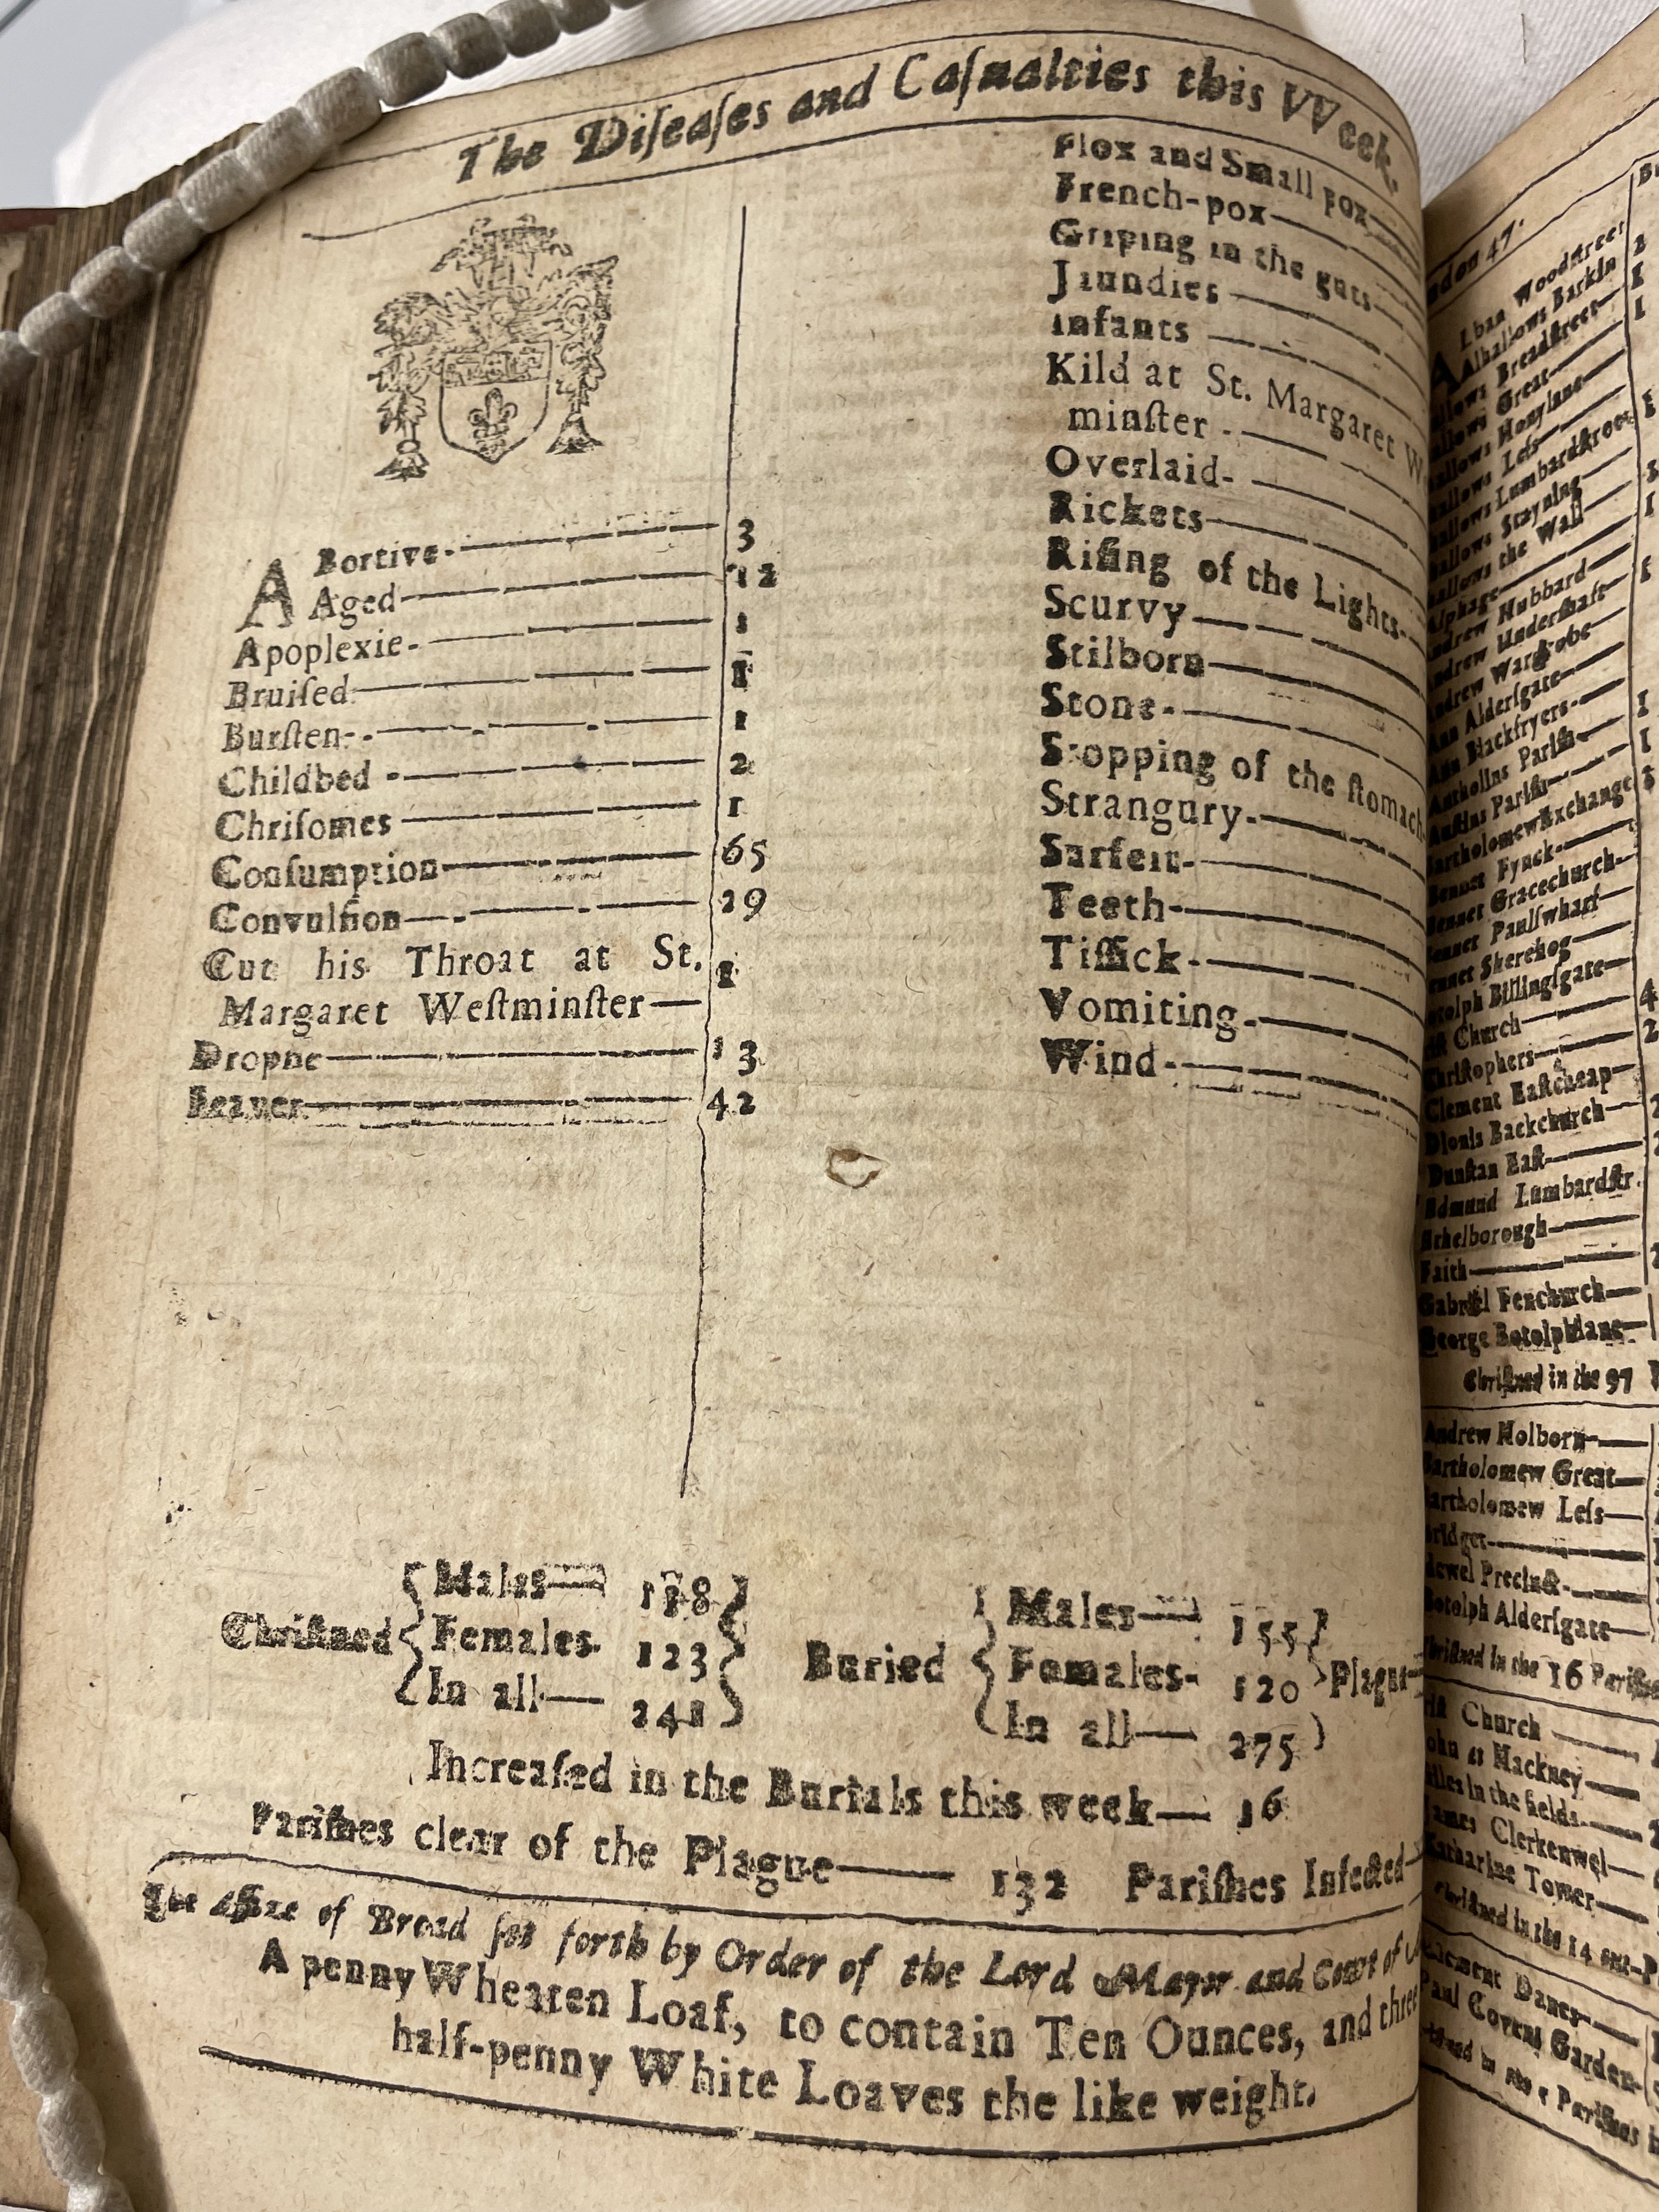 The Diſeaſes and Caſualties this VVeek.
ABortive 3
Aged 12
Apoplexie 1
Bruiſed 1
Burſten 1
Childbed 2
Chriſomes 1
Conſumption 65
Convulſion 29
Cut his Throat at St. Margaret Weſtminſter 1
Dropſie 13
Feaver 42
Flox and Small pox
French-pox
Griping in the guts
Jaundies
Infants
Kild at St. Margaret
minſter
Overlaid
Rickets
Riſing of the Lights
Scurvy
Stilborn
Stone
Stopping of the ſtomach
Strangury
Surfeit
Teeth
Tiſſick
Vomiting
Wind
Chriſtned
Males 118
Females 123
In all 241
Buried
Males 155
Females 120
In all 275
Plague
Increaſed in the Burials this week 16
Pariſhes clear of the Plague 132 Pariſhes Infected
The Aſſize of Bread ſet forth by Order of the Lord Mayor and Court of
A penny Wheaten Loaf, to contain Ten Ounces, and three
half-penny White Loaves the like weight.
47.
Alban Woodſtreet
Alhallows Barkin 2
Breadſtreet 1
Great 1
Honylane
Leſs
Lumbardſtreet
Stayning
the Wall
Alphage
Andrew Hubbard
Andrew Underſhaft
Andrew Wardrobe
Ann Alderſgate
Ann Blackfryers
Antholins Pariſh
Auſtins Pariſh
Bartholomew Exchange
Bennet Fynck
Bennet Gracechurch
Bennet Paulſwharf
Bennet Sherehog
Botolph Billingſgate
Church 4
Chriſtophers 2
Clement Eaſtcheap
Dionis Backchurch
Dunſtan Eaſt
Edmund Lumbardſtr.
Ethelborough
Faith
Gabriel Fenchurch
George Botolphlane
Chriſtned in the 97
Andrew Holborn
Bartholomew Great
Bartholomew Leſs
Bridget
Precinct
Botolph Alderſgate
Chriſtned in the 16 Pariſhes
Church
John at Hackney
Giles in the fields
James Clerkenwel
Katharine Tower
Chriſtned in the 14 out-P
Clement Danes
Paul Covent Garden
Pariſhes